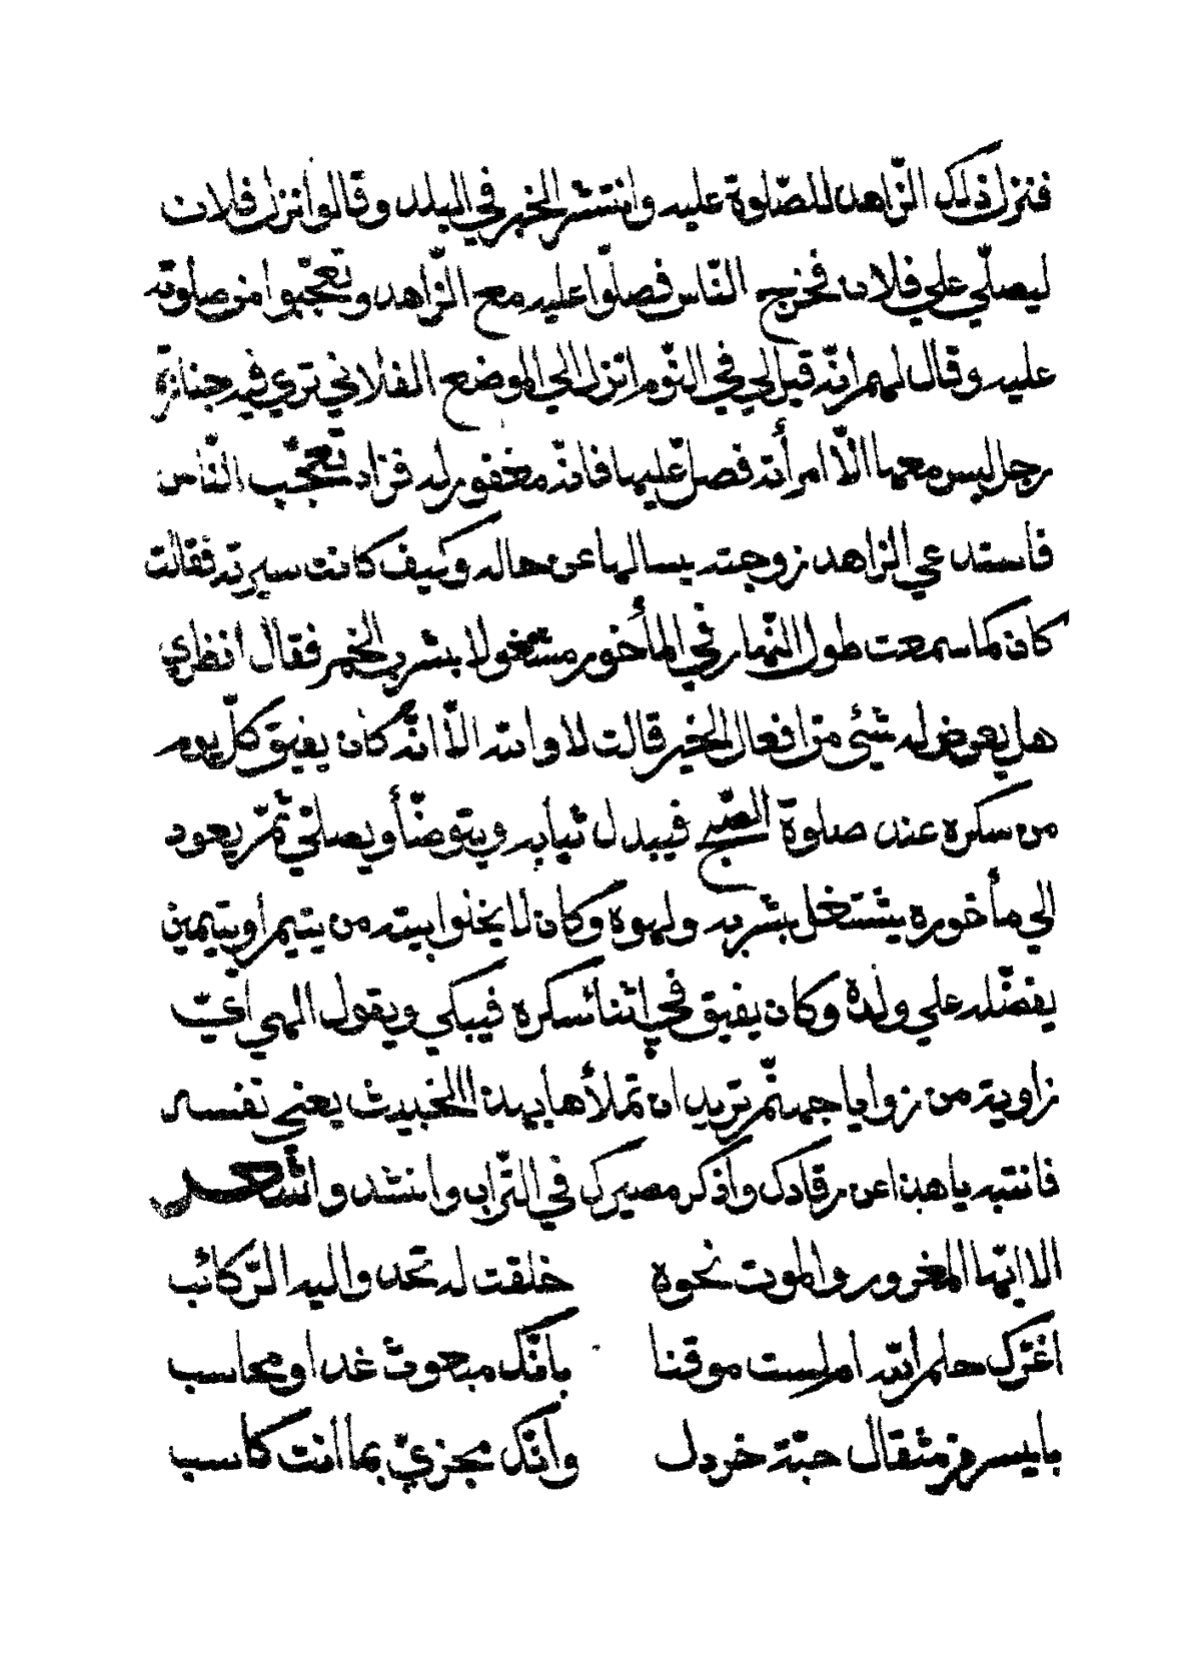 فنزل ذلك الزّاهد للصّلوة عليه وانتشر الخبر في البلد وقالوا نزل فلان
ليصلّي علي فلان فخرج النّاس فصلّوا عليه مع الزّاهد وتعجّبوا من صلوته
عليه وقال لهم انّه قيل لي في النّوم انزل الي الموضع الفلاني تري فيه جنازة
رجل ليس معها الّا امرأته فصلّ عليها فانّه مغفور له فزاد تعجّب النّاس
فاستدعي الزاهد زوجته يسالها عن حاله وكيف كانت سيرته فقالت
كان كما سمعت طول النّهار في المأخور مشغولا بشرب الخمر فقال انظري
هل يعرض له شئي من افعال الخير قالت لا والله الّا انّه كان يفيق كلّ يوم
من سكره عند صلوة الصّبح فيبدل ثيابه ويتوضّأ ويصلّي ثمّ يعود
الي مأخوره يشتغل بشربه ولهوه وكان لا يخلوا بيته من يتيم او يتيمين
يفضّله علي ولده وكان يفيق في اثنا سكره فيبكي ويقول الهي ايّ
زاوية من زوايا جهنّم تريد ان تملأها بهذا الخبيث يعني نفسه
فانتبه يا هذا عن رقادك واذكر مصيرك في التّراب وانشد واشعر
الا ايّها المغرور والموت نحوه خلقت له تحد واليه الرّكائب
اغرّك حلم الله ام لست موقنا بانّك مبعوث غدا ومحاسب
بايسر من مثقال حبّة خردل وانّك مجزيّ بما انت كاسب